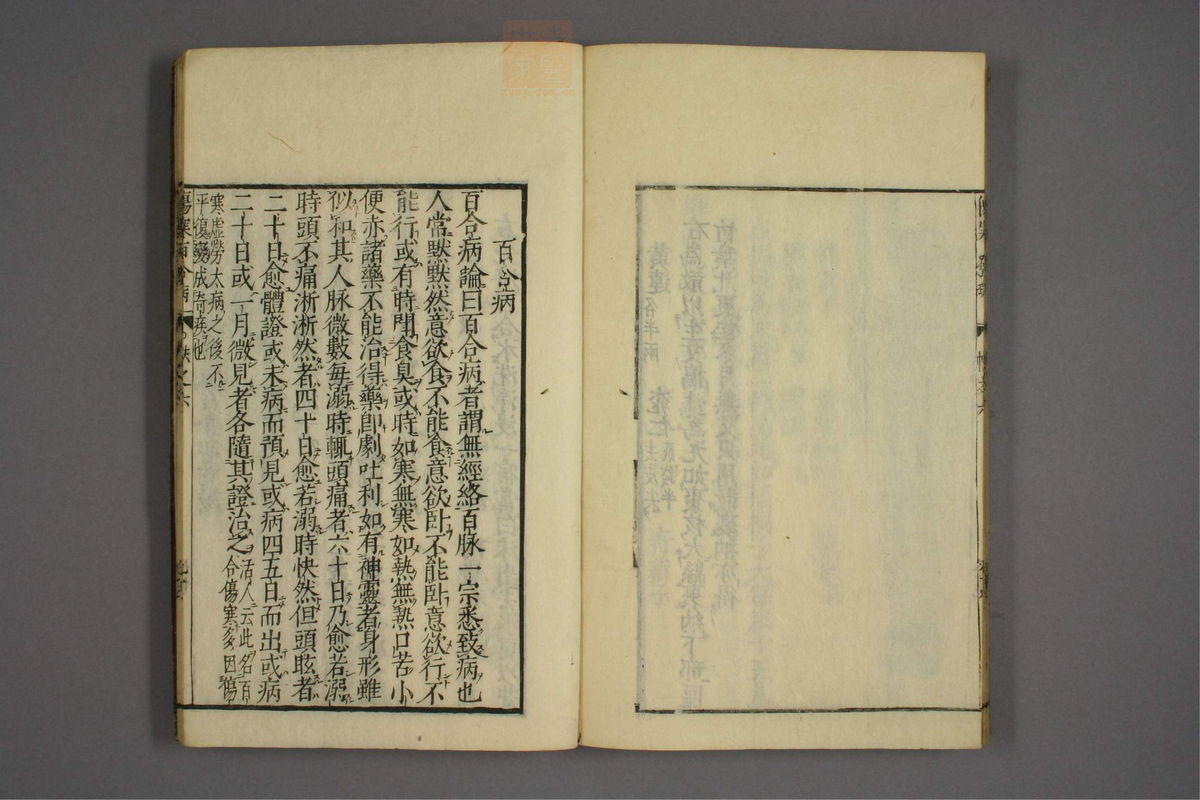 百合病
百合病論曰百合病者謂無經絡百脉一宗悉致病也
人常默默然意欲食不能食意欲臥不能臥意欲行不
能行或有時聞食臭或時如寒無寒如熱無熱口苦小
便赤諸藥不能治得藥卽劇吐利如有神靈者身形雖
似和其人脉微數每溺時輒頭痛者六十日乃愈若溺
時頭不痛淅淅然者四十日愈若溺時快然但頭眩者
二十日愈體證或未病而預見或病四五日而出或病
二十日或一月微見者各隨其證治之
活人云此名百
合傷寒多因傷
寒虛勞大病之後不
平復變成奇疾也